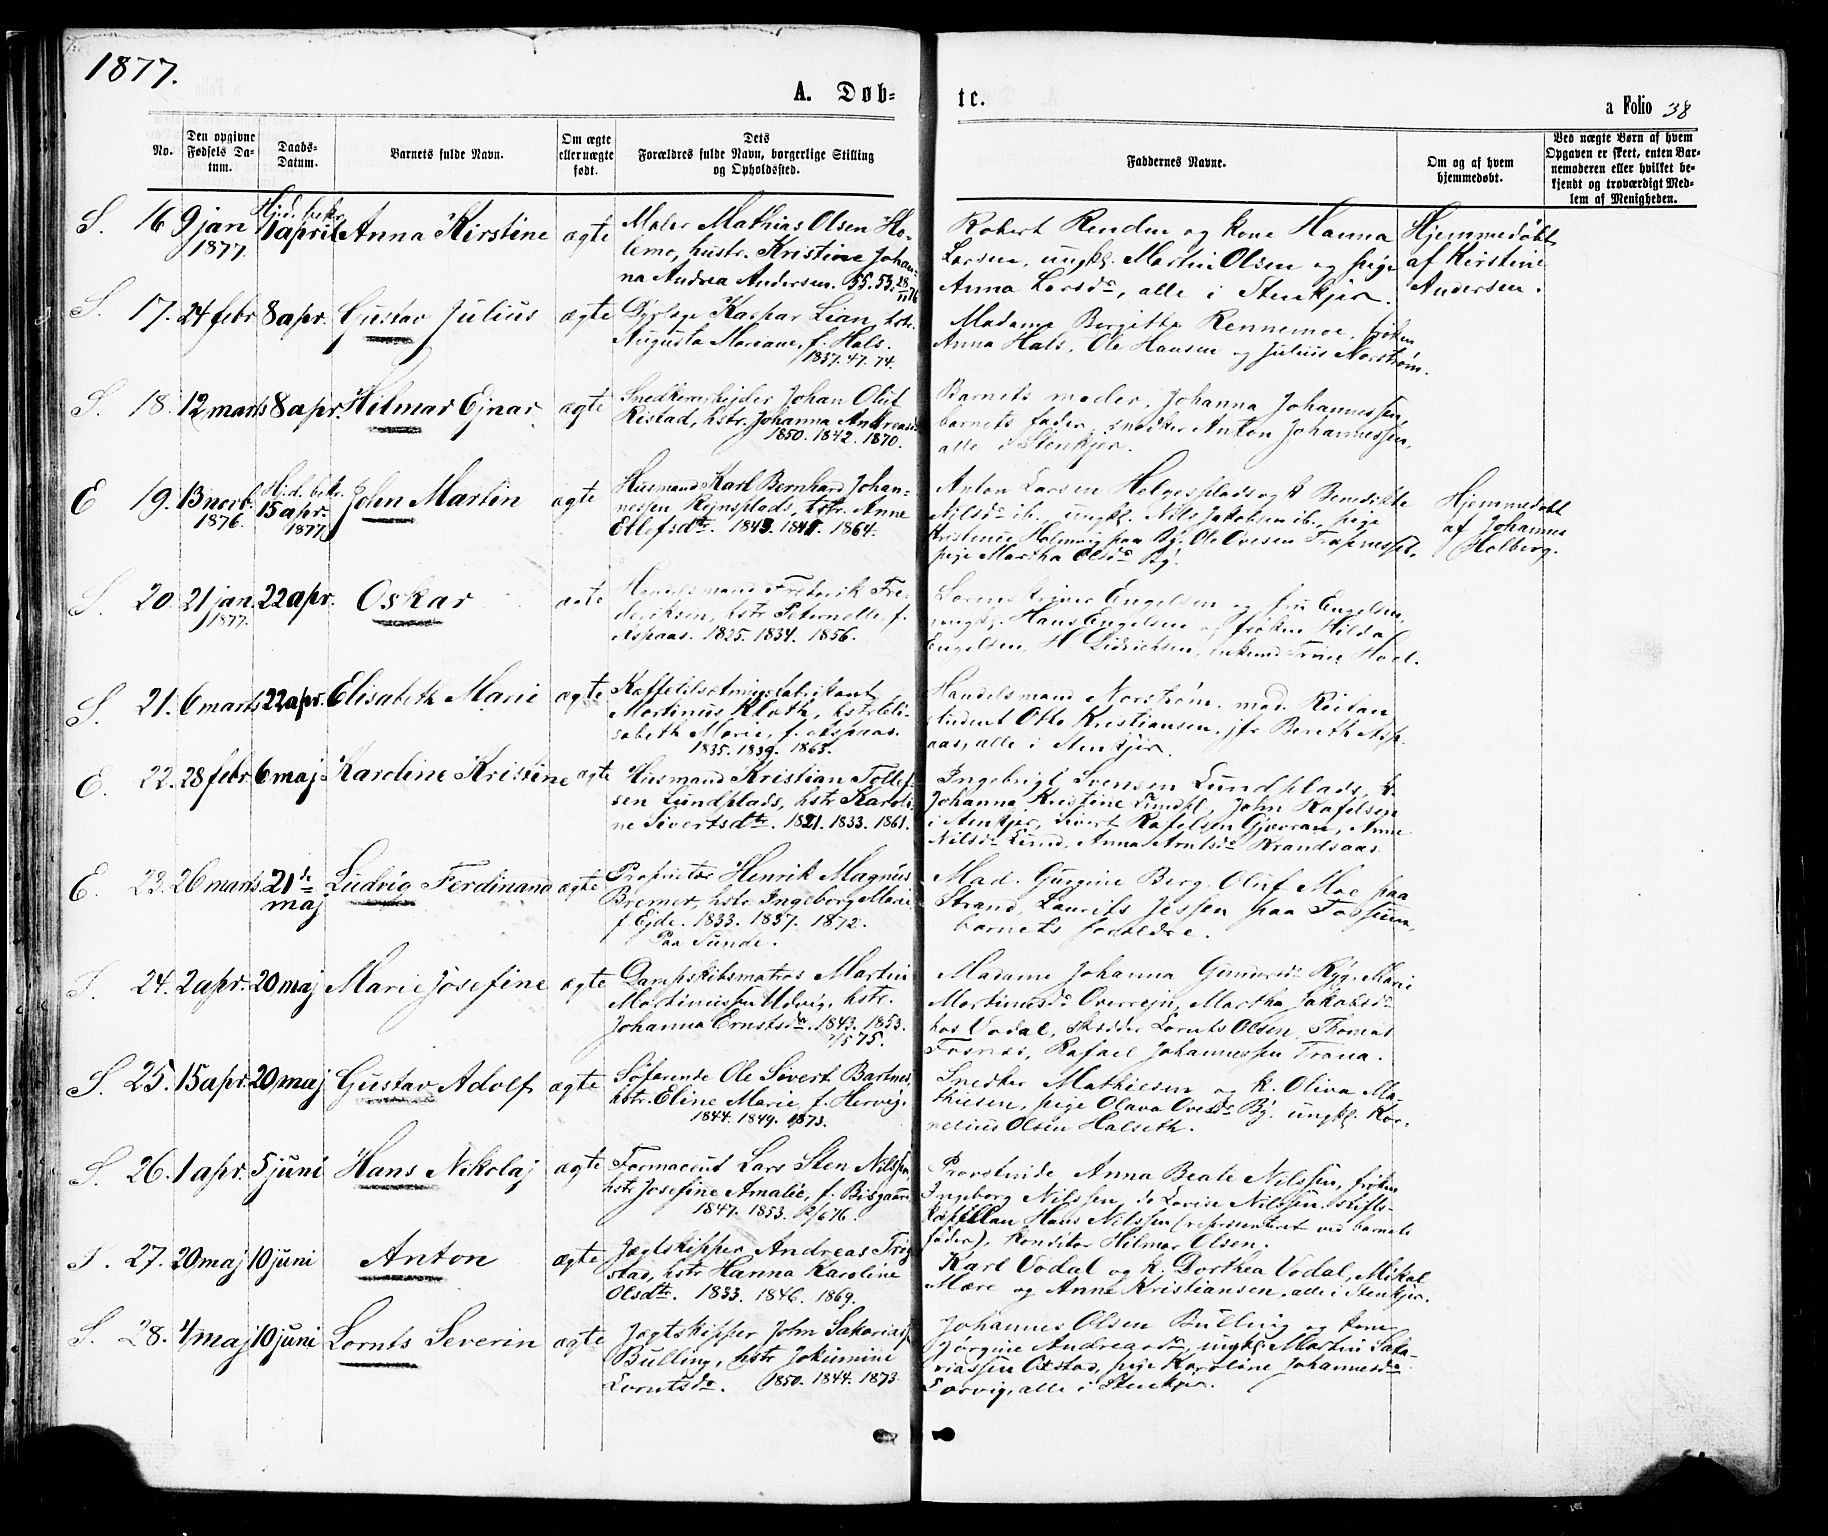 1877.
A. Døb-
te.
a Folio 38
No.
Den opgivne
Fødsels Da-
tum.
Daabs-
Datum.
Barnets fulde Navn.
Om ægte
eller uægte
født.
Dets
Forældres fulde Navn, borgerlige Stilling
og Opholdssted.
Faddernes Navne.
Om og af hvem
hjemmedøbt.
Ved uægte Børn af hvem
Opgaven er skeet, enten Bar-
nemoderen eller hvilket be-
kjendt og troværdigt Med-
lem af Menigheden.
S. 16 9 jan
1877.
Hj.d. bekr.
1 april
Anna Kirstine
ægte
Maler Mathias Olsen Ho-
lemo, hustr. Kristine Johan-
na Andrea Andersen. 55. 53. 28/11 76
Robert Rendum og kone Hanna
Larsen, ungk. Martin Olsen og pige
Anna Larsda, alle i Stenkjær.
Hjemmedøbt
af Kirstine
Andersen.
S. 17. 24 febr. 8 apr. Gustav Julius
ægte
Dyrlæge Kaspar Lian, hstr.
Augusta Mariane, f. Hals.
1837. 47. 74.
Madame Bergitte Rennemoe, frøken
Anna Hals, Ole Hansen og Julius Norstrøm.
S. 18. 12 marts 8 apr. Hilmar Ejnar
ægte
Snedkerarbejder Johan Oluf
Ristad, hstr. Johanna Andreasd.
1850. 1842. 1870.
Barnets moder, Johanna Johannessen
barnets fader, snedker Anton Johannessen,
alle i Stenkjær.
E 19. 13 novb.
1876.
Hj.d. bekr.
15 apr.
1877
John Martin
ægte
Husmand Karl Bernhard Johan-
nessen Rejnsplads, hstr. Anne
Ellefsdtr. 1843. 1841. 1864.
Anton Larsen Helgesplads og k. Benedikte
Nilsda ib., ungk. Nils Jakobsen ib., pige
Kristence Holmvig paa By, Ole Ovesen
pige Martha Olsda By.
Hjemmedøbt
af Johannes
Holberg.
S. 20. 21 jan.
1877.
22 apr. Oskar
ægte
Handelsmand Frederik Fre-
deriksen, hstr. Peternelle, f.
Aspaas. 1825. 1834. 1856.
Engelsen og fru Engelsen,
ungk. Hans Engelsen og frøken Hilda
Engelsen, H. Didrichsen, enkemd
S. 21. 6 marts 22 apr. Elisabeth Marie
ægte
Martinus Kloth, hstr. Eli-
sabeth Marie, f. Aspaas.
1835. 1839. 1865.
Handelsmand Norstrøm, mad. Reitan
student Otto Kristiansen, jfr. Bereth Asp-
aas, alle i Stenkjær.
E. 22. 28 febr. 6 maj Karoline Kristine
ægte
Husmand Kristian Tollef-
sen Lundplads, hstr. Karoli-
ne Sivertsdtr. 1821. 1833. 1861.
Ingebrigt Svensen Lundplads, k.
Johanna Kristine Lundpl., John Rafelsen
i Stenkjær, Sivert Rafelsen Gjævran, Anne
Nilsda Lund, Anna Arntsda Brandsaas.
E. 23. 26 marts. 21de
maj
Ludvig Ferdinand
ægte
Proprietær Henrik Magnus
Bremer, hstr. Ingeborg Marie
f. Ejde. 1833. 1837. 1872.
Paa Sunde.
Mad. Gurgine Berg, Oluf Moe paa
Strand, Laurits Jessen paa Fossum,
barnets forældre.
S. 24. 2 apr. 20 maj Marie Josefine
ægte
Dampskibsmatros Martin
Martinussen Udvig, hstr.
Johanna Ernstsda. 1843. 1853.
2/5 75.
Madame Johanna Gundersda Ryg, Mari
Martinusda Overrejn, Martha Jakobsda
hos Vodal, skrædder Lornts Olsen, Thomas
Fosnæs, Rafael Johannessen Trana.
S. 25. 15 apr. 20 maj Gustav Adolf
ægte
Søfarende Ole Sivert Bartnes,
hstr. Eline Marie, f. Hervig.
1844. 1849. 1873.
Snedker Mathiesen og k. Oliva Ma-
thiesen, pige Olava Ovesda By, ungk. Kor-
nelius Olsen Halseth.
S. 26. 1 apr. 5 juni Hans Nikolaj
ægte
Farmaceut Lars Sten Nilssen,
hstr. Josefine Amalie, f. Bisgaard
1847. 1853. 2/6 76.
Provstinde Anna Beate Nilssen, frøken
Ingeborg Nilssen, do Lovise Nilssen, stifts-
kapellan Hans Nilssen (repræsenteret ved barnets
fader), konditor Hilmar Olsen.
S. 27. 20 maj 10 juni Anton
ægte
Jægtskipper Andreas Trøg-
stad, hstr. Hanna Karoline
Olsdtr. 1833. 1846. 1869.
Karl Vodal og k. Dorthea Vodal, Mikal
Mære og Anne Kristiansen, alle i Stenkjær.
S. 28. 4 maj 10 juni Lornts Severin
ægte
Jægtskipper John Sakariass.
Bulling, hstr. Jokumine
Lorntsda. 1850. 1844. 1873.
Johannes Olsen Bulling og kone
Jørgine Andreasda, ungk. Martin Saka-
riassen Oxstad, pige Karoline Johannesda
Sorvig, alle i Stenkjær.